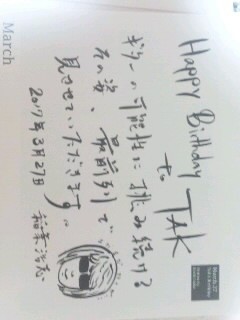 March
Happy Birthday
to TAK
ギターの可能性に挑み続ける
その姿、最前列で
見させていただきます。
2017年3月27日
稲葉浩志
March 27